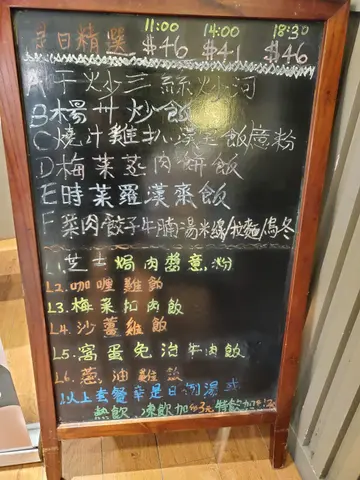 11:00 14:00 18:30
是日精選 $46 $41 $46
A干炒三絲炒河
B楊卅炒飯
C燒汁雞扒漢堡飯/意粉
D梅菜蒸肉餅飯
E時菜羅漢齋飯
F菜肉餃子牛腩湯米線/拉麵/烏冬
L1.芝士焗肉醬意粉
L2.咖喱雞飯
L3.梅菜扣肉飯
L4.沙薑雞飯
L5.窩蛋免治牛肉飯
L6.蔥油雞飯
以上套餐 是日例湯
熱飲、凍飲加 特飲加